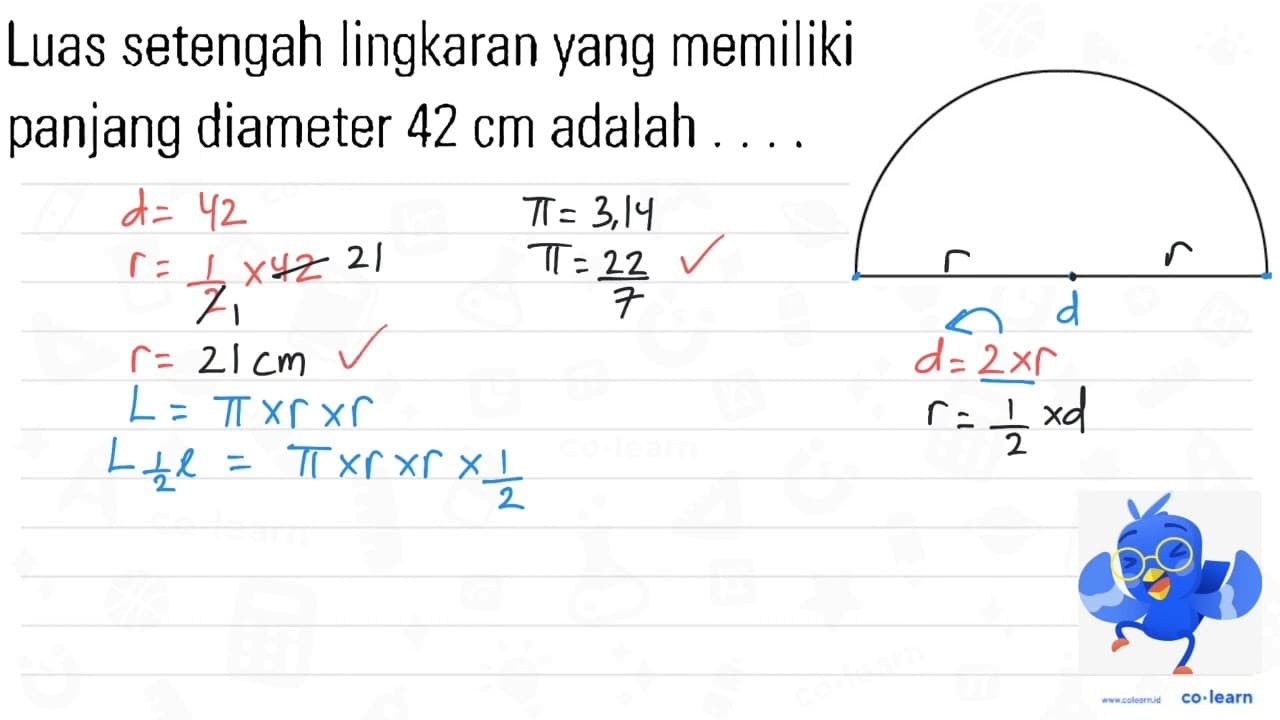 Luas setengah lingkaran yang memiliki
panjang diameter 42 cm adalah . . . .
d = 42
r = 1/2 x 42 21
1
r = 21 cm ✓
L = π x r x r
L 1/2 l = π x r x r x 1/2
π = 3,14
π = 22/7 ✓
r r
d
d = 2 x r
r = 1/2 x d
www.colearn.id co·learn